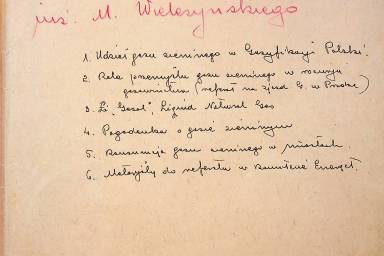 inż. M. Wieleżyńskiego
1. Udział gazu ziemnego w Gazyfikacji Polski.
2. Rola przemysłu gazu ziemnego w rozwoju
gazownictwa (referat na zjazd G. w Pradze)
3. "Gazol", Liquid Natural Gas
4. Pogadanka o gazie ziemnym
5. Konsumcja gazu ziemnego w miastach.
6. Materjały do referatu w Komitecie Energet.